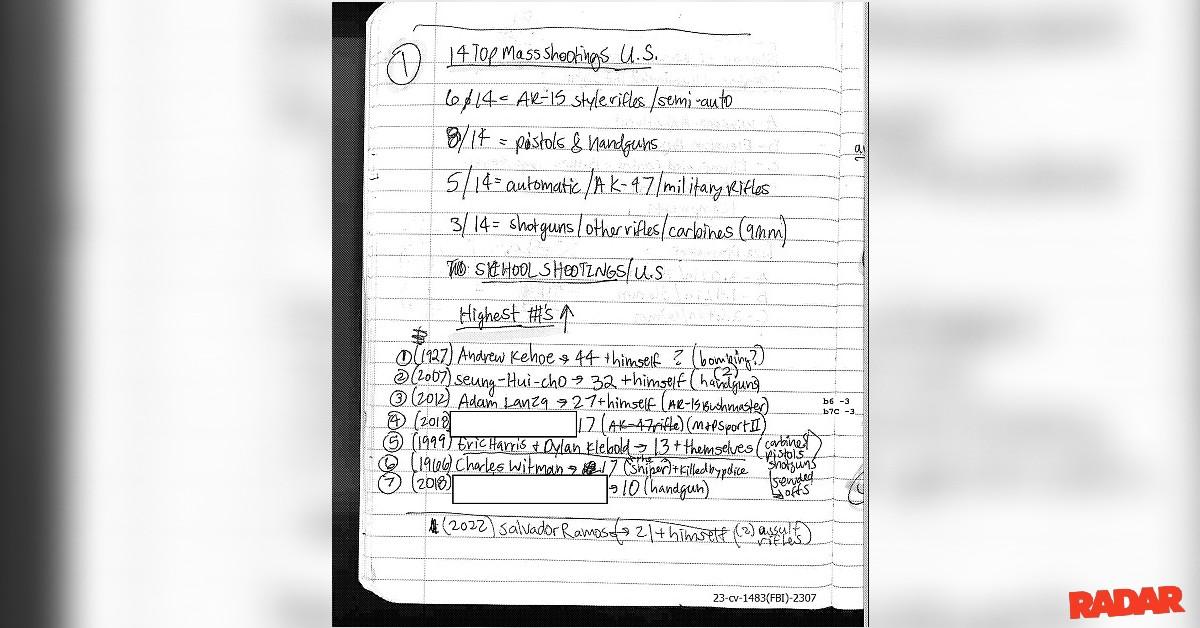 1
14 Top Mass Shootings U.S.
6/14 = AR-15 style rifles/semi-auto
8/14 = pistols & handguns
5/14 = automatic/AK-47/military Rifles
3/14 = shotguns/other rifles/carbines (9mm)
SCHOOL SHOOTINGS/U.S
Highest #'s ↑
① (1927) Andrew Kehoe → 44 + himself ? (bombing?)
② (2007) Seung-Hui-cho → 32 + himself ((2) handguns)
③ (2012) Adam Lanza → 27 + himself (AR-15 Bushmaster)
④ (2018) 17 (AK-47 rifle) (M+P Sport II)
⑤ (1999) Eric Harris + Dylan Klebold → 13 + themselves (carbines pistols shotguns
⑥ (1966) Charles Witman → 17 (sniper) + killed by police
⑦ (2018) → 10 (handgun)
(2022) Salvador Ramos → 21 + himself (2) assulf rifles)
b6 -3
b7C -3
23-cv-1483(FBI)-2307
RADAR